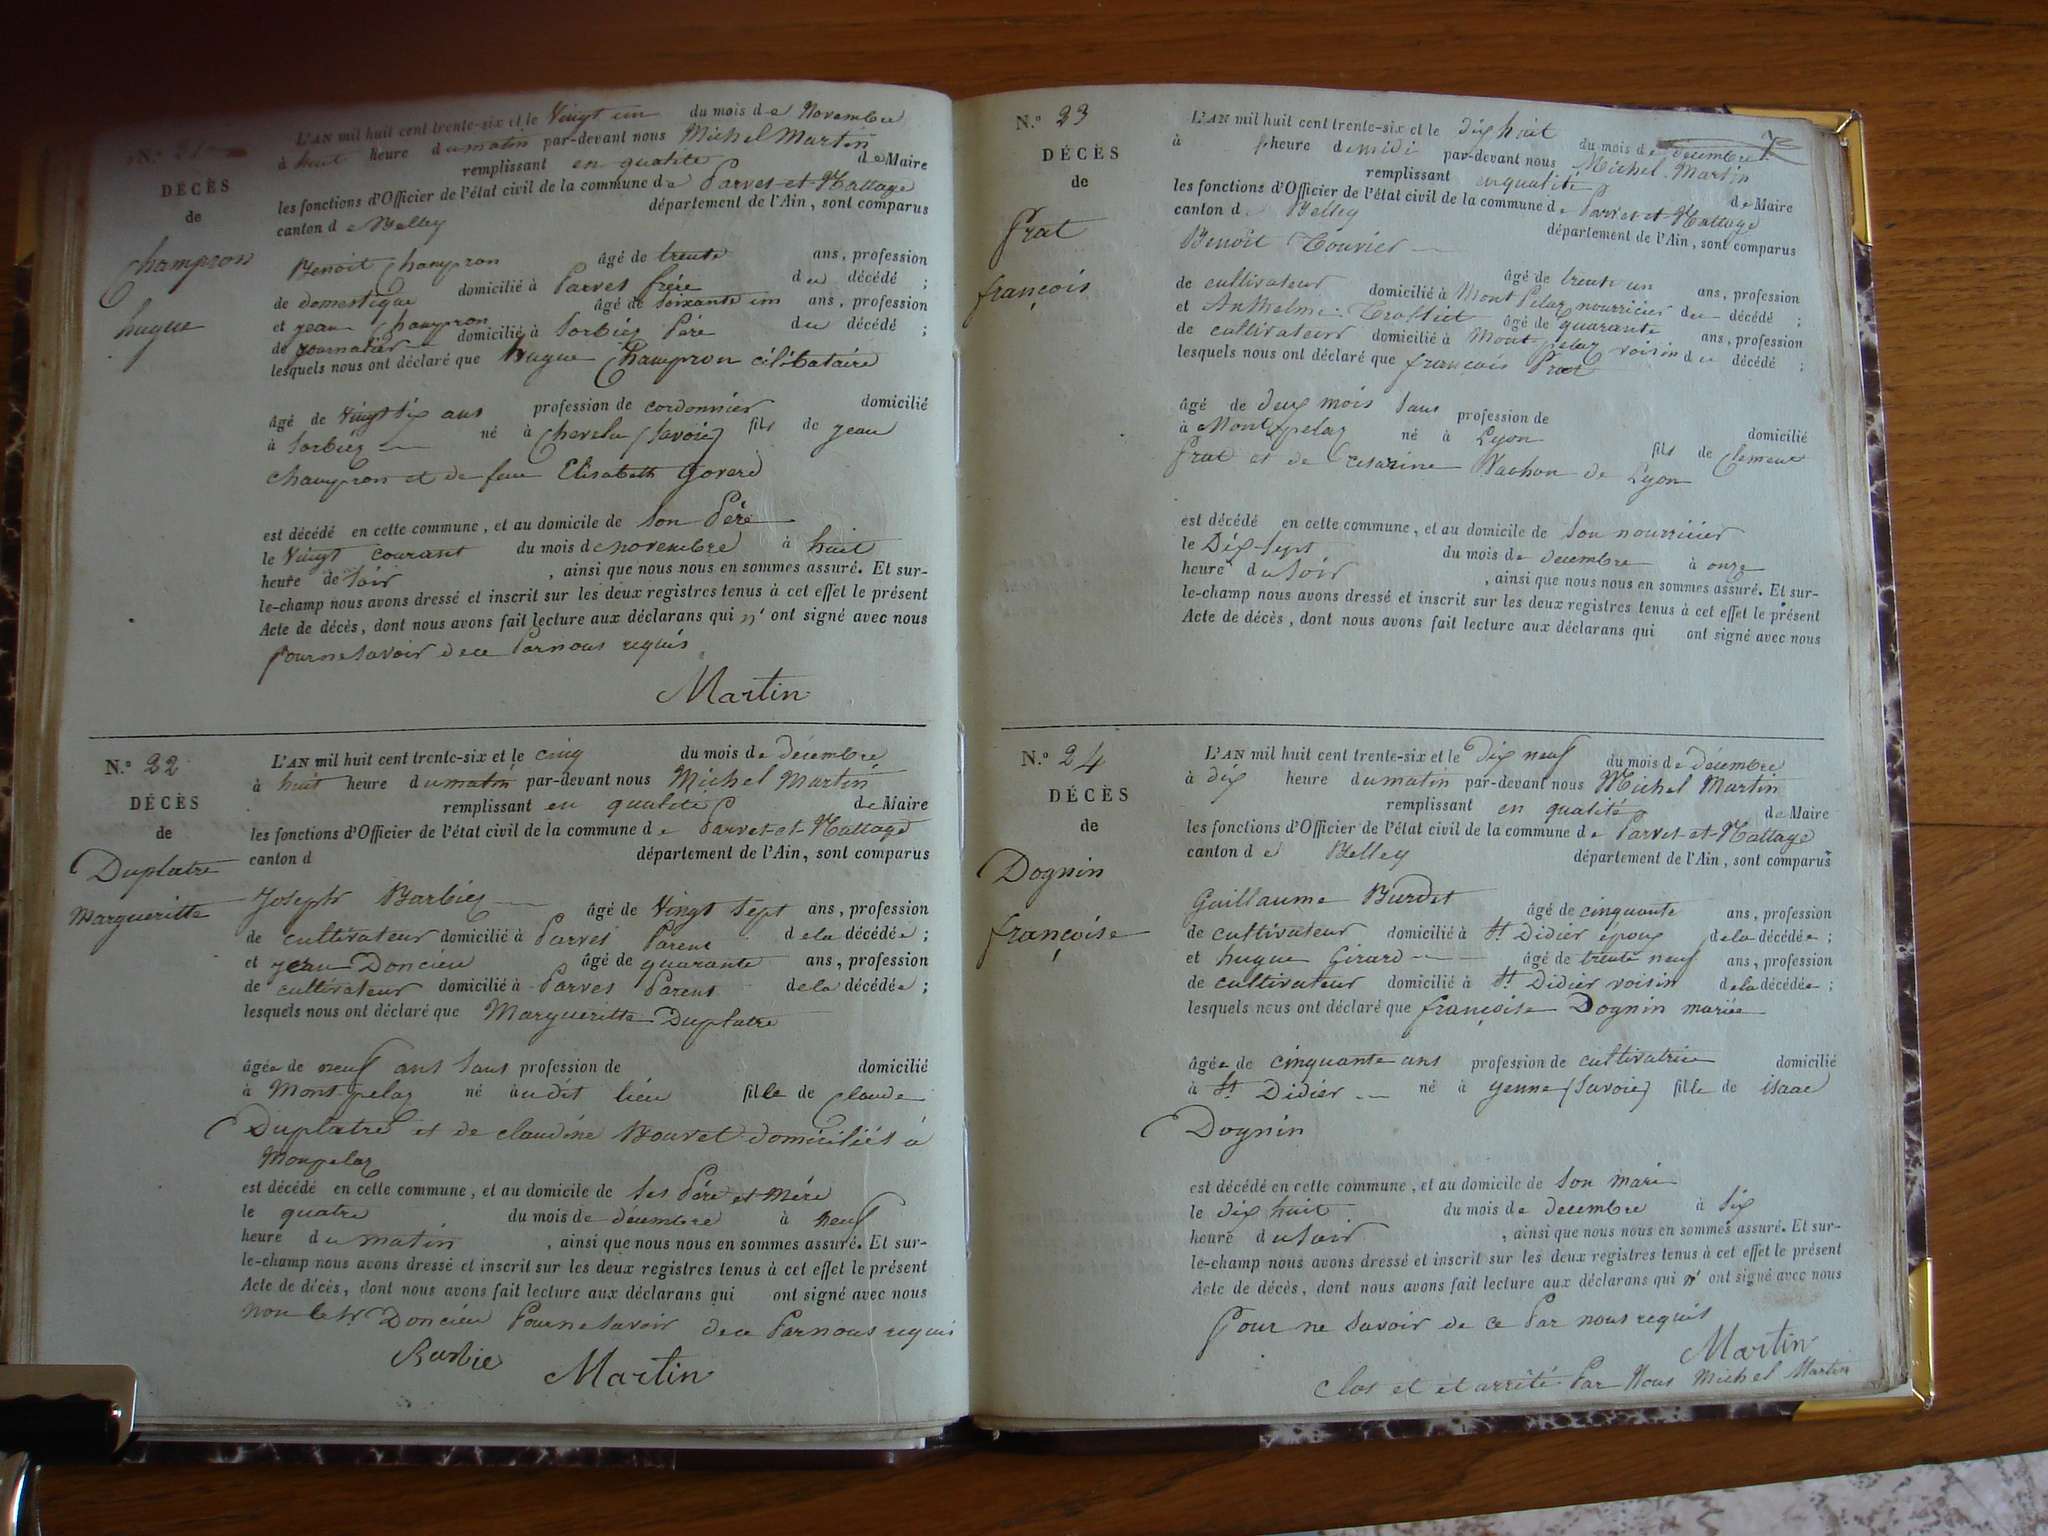 N.° 21
DÉCÈS
de
Champron
hugue
L'AN mil huit cent trente-six et le Vingt un du mois de Novembre
à huit heure du matin par-devant nous Michel Martin
remplissant en qualité de Maire
les fonctions d'Officier de l'état civil de la commune de Parves-et-Nattage
canton de Belley département de l'Ain, sont comparus
Benoit Champron âgé de trente ans, profession
de domestique domicilié à Parves frère du décédé ;
et jean Champron âgé de soixante un ans, profession
de journalier domicilié à Sorbiez Père du décédé ;
lesquels nous ont déclaré que hugue Champron célibataire
âgé de Vingt six ans profession de cordonnier domicilié
à Sorbiez né à Chevelu (Savoie) fils de jean
Champron et de feue Elisabeth Goverd
est décédé en cette commune, et au domicile de son Père
le Vingt courant du mois de novembre à huit
heure de soir , ainsi que nous nous en sommes assuré. Et sur-
le-champ nous avons dressé et inscrit sur les deux registres tenus à cet effet le présent
Acte de décès, dont nous avons fait lecture aux déclarans qui n' ont signé avec nous
Pour ne savoir de ce Par nous requis
Martin
N.° 22
DÉCÈS
de
Duplatre
Margueritte
L'AN mil huit cent trente-six et le cinq du mois de décembre
à huit heure du matin par-devant nous Michel Martin
remplissant en qualité de Maire
les fonctions d'Officier de l'état civil de la commune de Parves-et-Nattage
canton d département de l'Ain, sont comparus
Joseph Barbiez âgé de Vingt sept ans, profession
de cultivateur domicilié à Parves Parent de la décédée ;
et jean Doncieu âgé de quarante ans, profession
de cultivateur domicilié à Parves Parent de la décédée ;
lesquels nous ont déclaré que Margueritte Duplatre
âgée de neuf ans sans profession de domicilié
à Mont pelaz né audit lieu fille de Claude
Duplatre et de claudine Bouvet domiciliés à
Monpelaz
est décédé en cette commune, et au domicile de ses Père et Mère
le quatre du mois de décembre à neuf
heure du matin , ainsi que nous nous en sommes assuré. Et sur-
le-champ nous avons dressé et inscrit sur les deux registres tenus à cet effet le présent
Acte de décès, dont nous avons fait lecture aux déclarans qui ont signé avec nous
non le Sr Doncieu Pour ne savoir de ce Par nous requis
Barbie Martin
N.° 23
DÉCÈS
de
Prat
françois
7
L'AN mil huit cent trente-six et le dix huit du mois de décembre
à heure de midi par-devant nous Michel Martin
remplissant en qualité de Maire
les fonctions d'Officier de l'état civil de la commune de Parves-et-Nattage
canton de Belley département de l'Ain, sont comparus
Benoît âgé de trente un ans, profession
de cultivateur domicilié à Mont Pelaz nourricier du décédé ;
et Anthelme âgé de quarante ans, profession
de cultivateur domicilié à Mont pelaz voisin du décédé ;
lesquels nous ont déclaré que françois Prat
âgé de deux mois sans profession de domicilié
à Mont pelaz né à Lyon fils de Clement
Prat et de cesarine Vachon de Lyon
est décédé en cette commune, et au domicile de son nourricier
le Dix-sept du mois de decembre à onze
heure du soir , ainsi que nous nous en sommes assuré. Et sur-
le-champ nous avons dressé et inscrit sur les deux registres tenus à cet effet le présent
Acte de décès, dont nous avons fait lecture aux déclarans qui ont signé avec nous
N.° 24
DÉCÈS
de
Dognin
françoise
L'AN mil huit cent trente-six et le dix neuf du mois de décembre
à dix heure du matin par-devant nous Michel Martin
remplissant en qualité de Maire
les fonctions d'Officier de l'état civil de la commune de Parves-et-Nattage
canton de Belley département de l'Ain, sont comparus
Guillaume Burdet âgé de cinquante ans, profession
de cultivateur domicilié à St. Didier époux de la décédée ;
et hugue Girard âgé de trente neuf ans, profession
de cultivateur domicilié à St. Didier voisin de la décédée ;
lesquels nous ont déclaré que françoise Dognin mariée
âgée de cinquante ans profession de cultivatrice domicilié
à St. Didier né à yenne (Savoie) fille de isaac
Dognin
est décédé en cette commune, et au domicile de son mari
le dix huit du mois de decembre à six
heure du soir , ainsi que nous nous en sommes assuré. Et sur-
le-champ nous avons dressé et inscrit sur les deux registres tenus à cet effet le présent
Acte de décès, dont nous avons fait lecture aux déclarans qui n' ont signé avec nous
Pour ne savoir de ce Par nous requis
Martin
Clos et et arrêté Par Nous Michel Martin